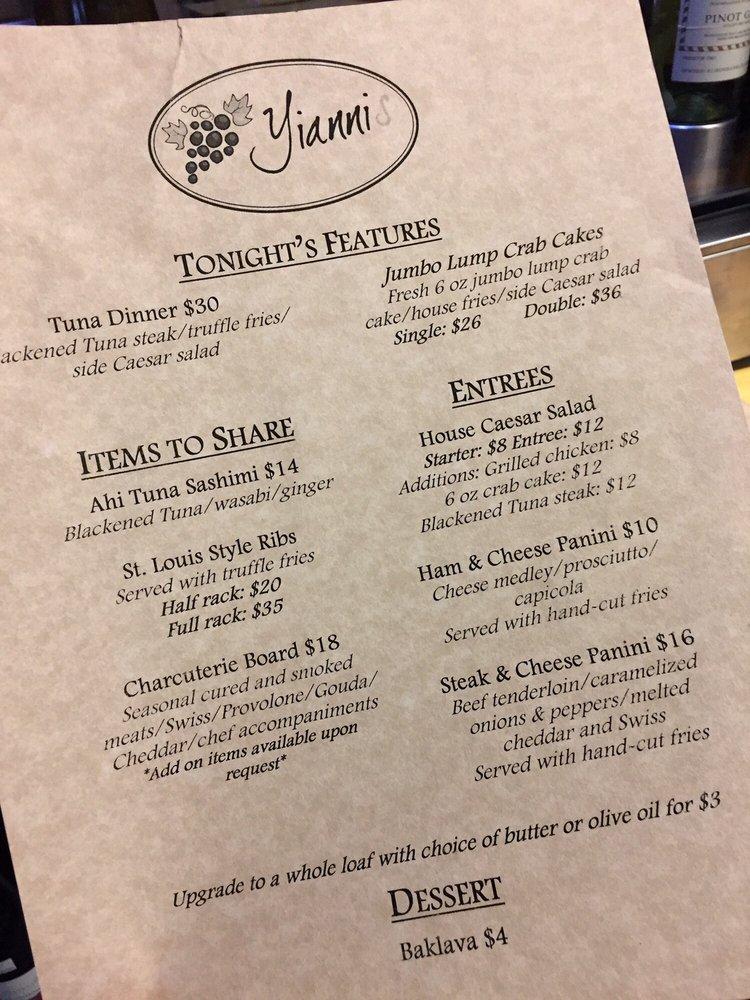 Yiannis
TONIGHT'S FEATURES
Tuna Dinner $30
ackened Tuna steak/truffle fries/
side Caesar salad
Jumbo Lump Crab Cakes
Fresh 6 oz jumbo lump crab
cake/house fries/side Caesar salad
Single: $26 Double: $36
ITEMS TO SHARE
Ahi Tuna Sashimi $14
Blackened Tuna/wasabi/ginger
St. Louis Style Ribs
Served with truffle fries
Half rack: $20
Full rack: $35
Charcuterie Board $18
Seasonal cured and smoked
meats/Swiss/Provolone/Gouda/
Cheddar/chef accompaniments
*Add on items available upon
request*
ENTREES
House Caesar Salad
Starter: $8 Entree: $12
Additions: Grilled chicken: $8
6 oz crab cake: $12
Blackened Tuna steak: $12
Ham & Cheese Panini $10
Cheese medley/prosciutto/
capicola
Served with hand-cut fries
Steak & Cheese Panini $16
Beef tenderloin/caramelized
onions & peppers/melted
cheddar and Swiss
Served with hand-cut fries
Upgrade to a whole loaf with choice of butter or olive oil for $3
DESSERT
Baklava $4
PINOT G